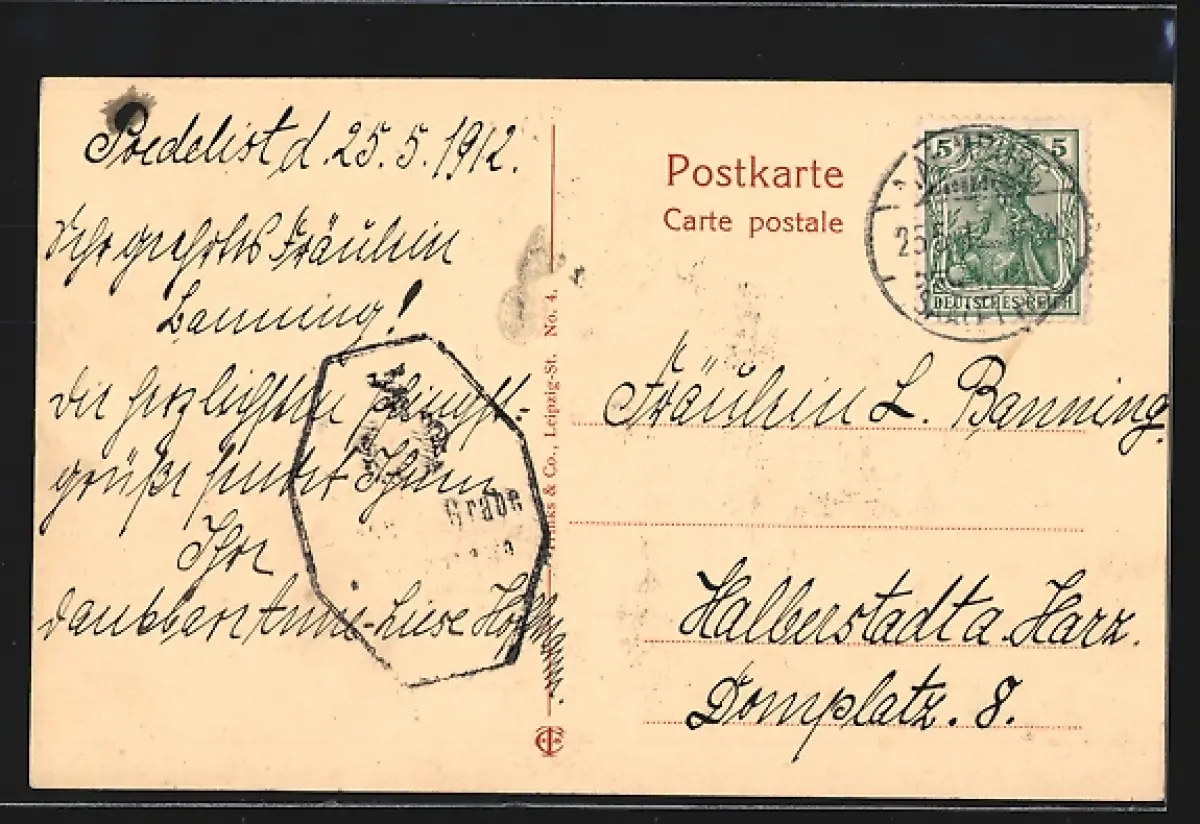 Poedelist d. 25.5.1912.
Sehr geehrtes Fräulein
Banning!
Die herzlichsten Pfingst-
grüße sendet Ihnen
Ihre
dankbare Anne-Liese Hoffmann.
Grabe
Hinks & Co., Leipzig-St. No. 4.
Postkarte
Carte postale
5 5
DEUTSCHES REICH
25
Fräulein L. Banning
Halberstadt a. Harz.
Domplatz. 8.